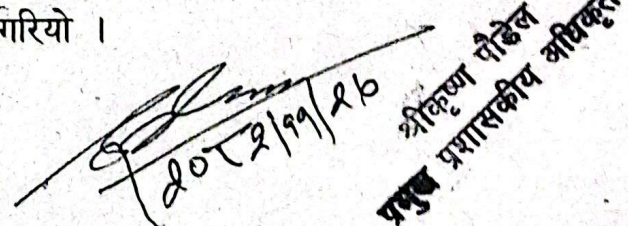 गरियो ।
२०८२|११|२७
श्रीकृष्ण पौडेल
प्रमुख प्रशासकीय अधिकृत